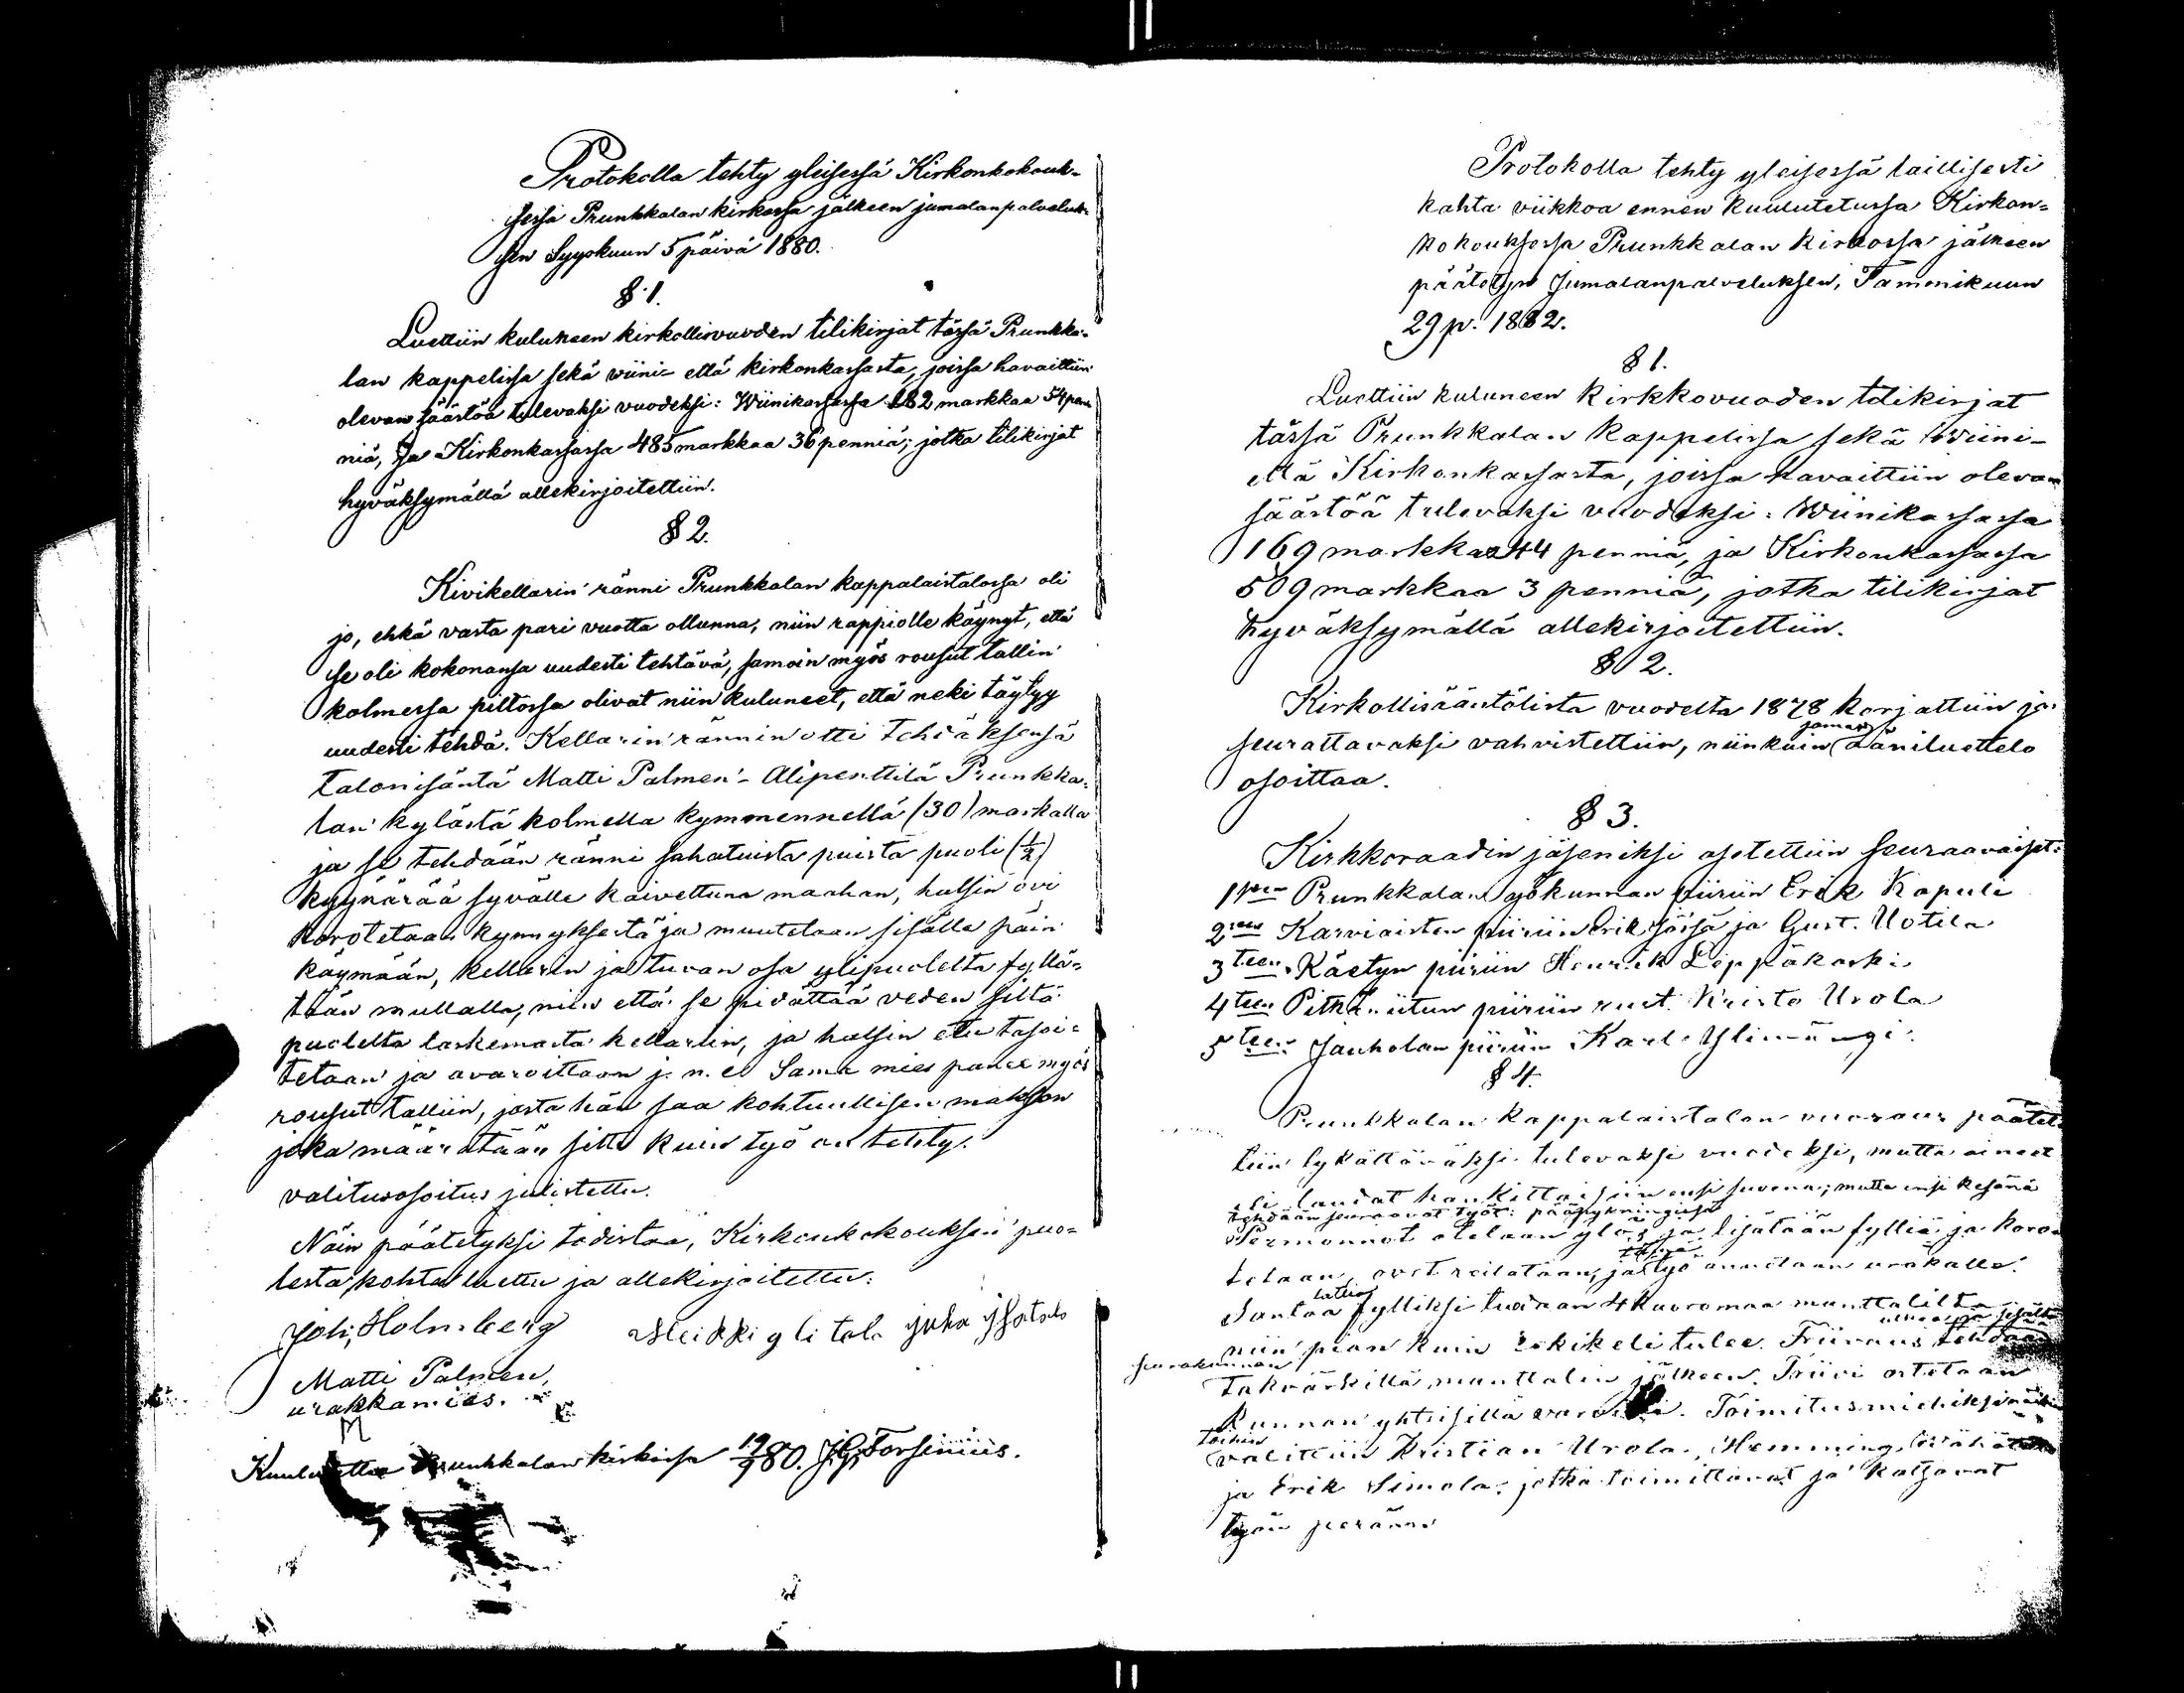 Protokolla tehty yleisessä Kirkonkokouk-
sessa Prunkkalan kirkossa jälkeen jumalanpalveluk-
sen Syyskuun 5 päivä 1880.
§ 1.
Luettiin kuluneen kirkollisvuoden tilikirjat tässä Prunkka-
lan kappelissa sekä viini- että kirkonkassasta, joissa havaittiin
olevan säästöä tulevaksi vuodeksi: Wiinikassassa 182 markkaa 54 pen-
niä, ja Kirkonkassassa 485 markkaa 36 penniä; jotka tilikirjat
hyväksymällä allekirjoitettiin.
§ 2.
Kivikellarin ränni Prunkkalan kappalaistalossa oli
jo, ehkä vasta pari vuotta ollunna, niin rappiolle käynyt, että
se oli kokonansa uudesti tehtävä, samoin myös rousut tallin
kolmessa piltossa olivat niin kuluneet, että neki täytyy
uudesti tehdä. Kellarin rännin otti tehdäksensä
talonisäntä Matti Palmen - Alipenttilä Prunkka-
lan kylästä kolmella kymmennellä (30) markalla
ja se tehdään ränni sahatuista puista puoli (1/2)
kyynärää syvälle kaivettuna maahan, halsin ovi
korotetaan kynnyksestä ja muutetaan sisälle päin
käymään, kellarin ja tuvan osa ylipuolelta fyllä-
tään mullalla, niin että se pidättää veden siltä
puolelta laskemasta kellariin, ja halsin etu tasoi-
tetaan ja avaroittaan j. n. e. Sama mies panee myös
rousut talliin, josta hän saa kohtuullisen makson
joka määrätään sitte kuin työ on tehty.
valitusosoitus julistettu.
Näin päätetyksi todistaa, Kirkonkokouksen puo-
lesta, kohta luettu ja allekirjoitettu:
Joh. Holmberg Heikki yli talo juha isotalo
Matti Palmen,
urakkamies.
Kuulutettu Prunkkalan kirkossa 19/9 80. J. G. Forsenius.
Protokolla tehty yleisessä laillisesti
kahta viikkoa ennen kuulutetussa Kirkon-
kokouksessa Prunkkalan kirkossa jälkeen
päätetyn Jumalanpalveluksen, Tammikuun
29 p. 1882.
§ 1.
Luettiin kuluneen kirkkovuoden tilikirjat
tässä Prunkkalan kappelissa sekä Wiini-
että Kirkonkassasta, joissa havaittiin olevan
säästöä tulevaksi vuodeksi: Wiinikassassa
169 markkaa 44 penniä, ja Kirkonkassassa
509 markkaa 3 penniä, jotka tilikirjat
hyväksymällä allekirjoitettiin.
§ 2.
Kirkollisääntölista vuodelta 1878 korjattiin ja
seurattavaksi vahvistettiin, niinkuin saman ääniluettelo
osoittaa.
§ 3.
Kirkkoraadin jäseniksi asetettiin seuraavaiset:
1sen Prunkkalan jokunnan piiriin Erik Kapuli
2sen Karviaisten piiriin Erik Jässä ja Gust. Uotila
3teen Käetyn piiriin Henrik Leppäkoski
4teen Pitkäniitun piiriin rust. Kristo Urola
5teen Jauholan piiriin Karl Ylinängi.
§ 4.
Prunkkalan kappalaistalon vuoraus päätet-
tiin lykättäväksi tulevaksi vuodeksi, mutta aineet
eli laudat hankittaisiin ensi suvena; mutta ensi kesänä
tehdään seuraavat työt: päärykningissä
Permannot otetaan ylös ja lisätään fylliä ja koro-
tetaan, ovet reilataan, ja työ annetaan urakalle.
Santaa fylliksi tuodaan 4 kuormaa manttalilta
niin pian kuin rekikeli tulee. Friivaus tehdään
seurakunnan
takvärkillä manttalin jälkeen. Triivi ostetaan
kunnan yhteisillä varoilla. Toimitusmiehiksi näihin
töihin
valittiin Kristian Urola, Hemming
ja Erik Simola, jotka toimittavat ja katsovat
työn perään.